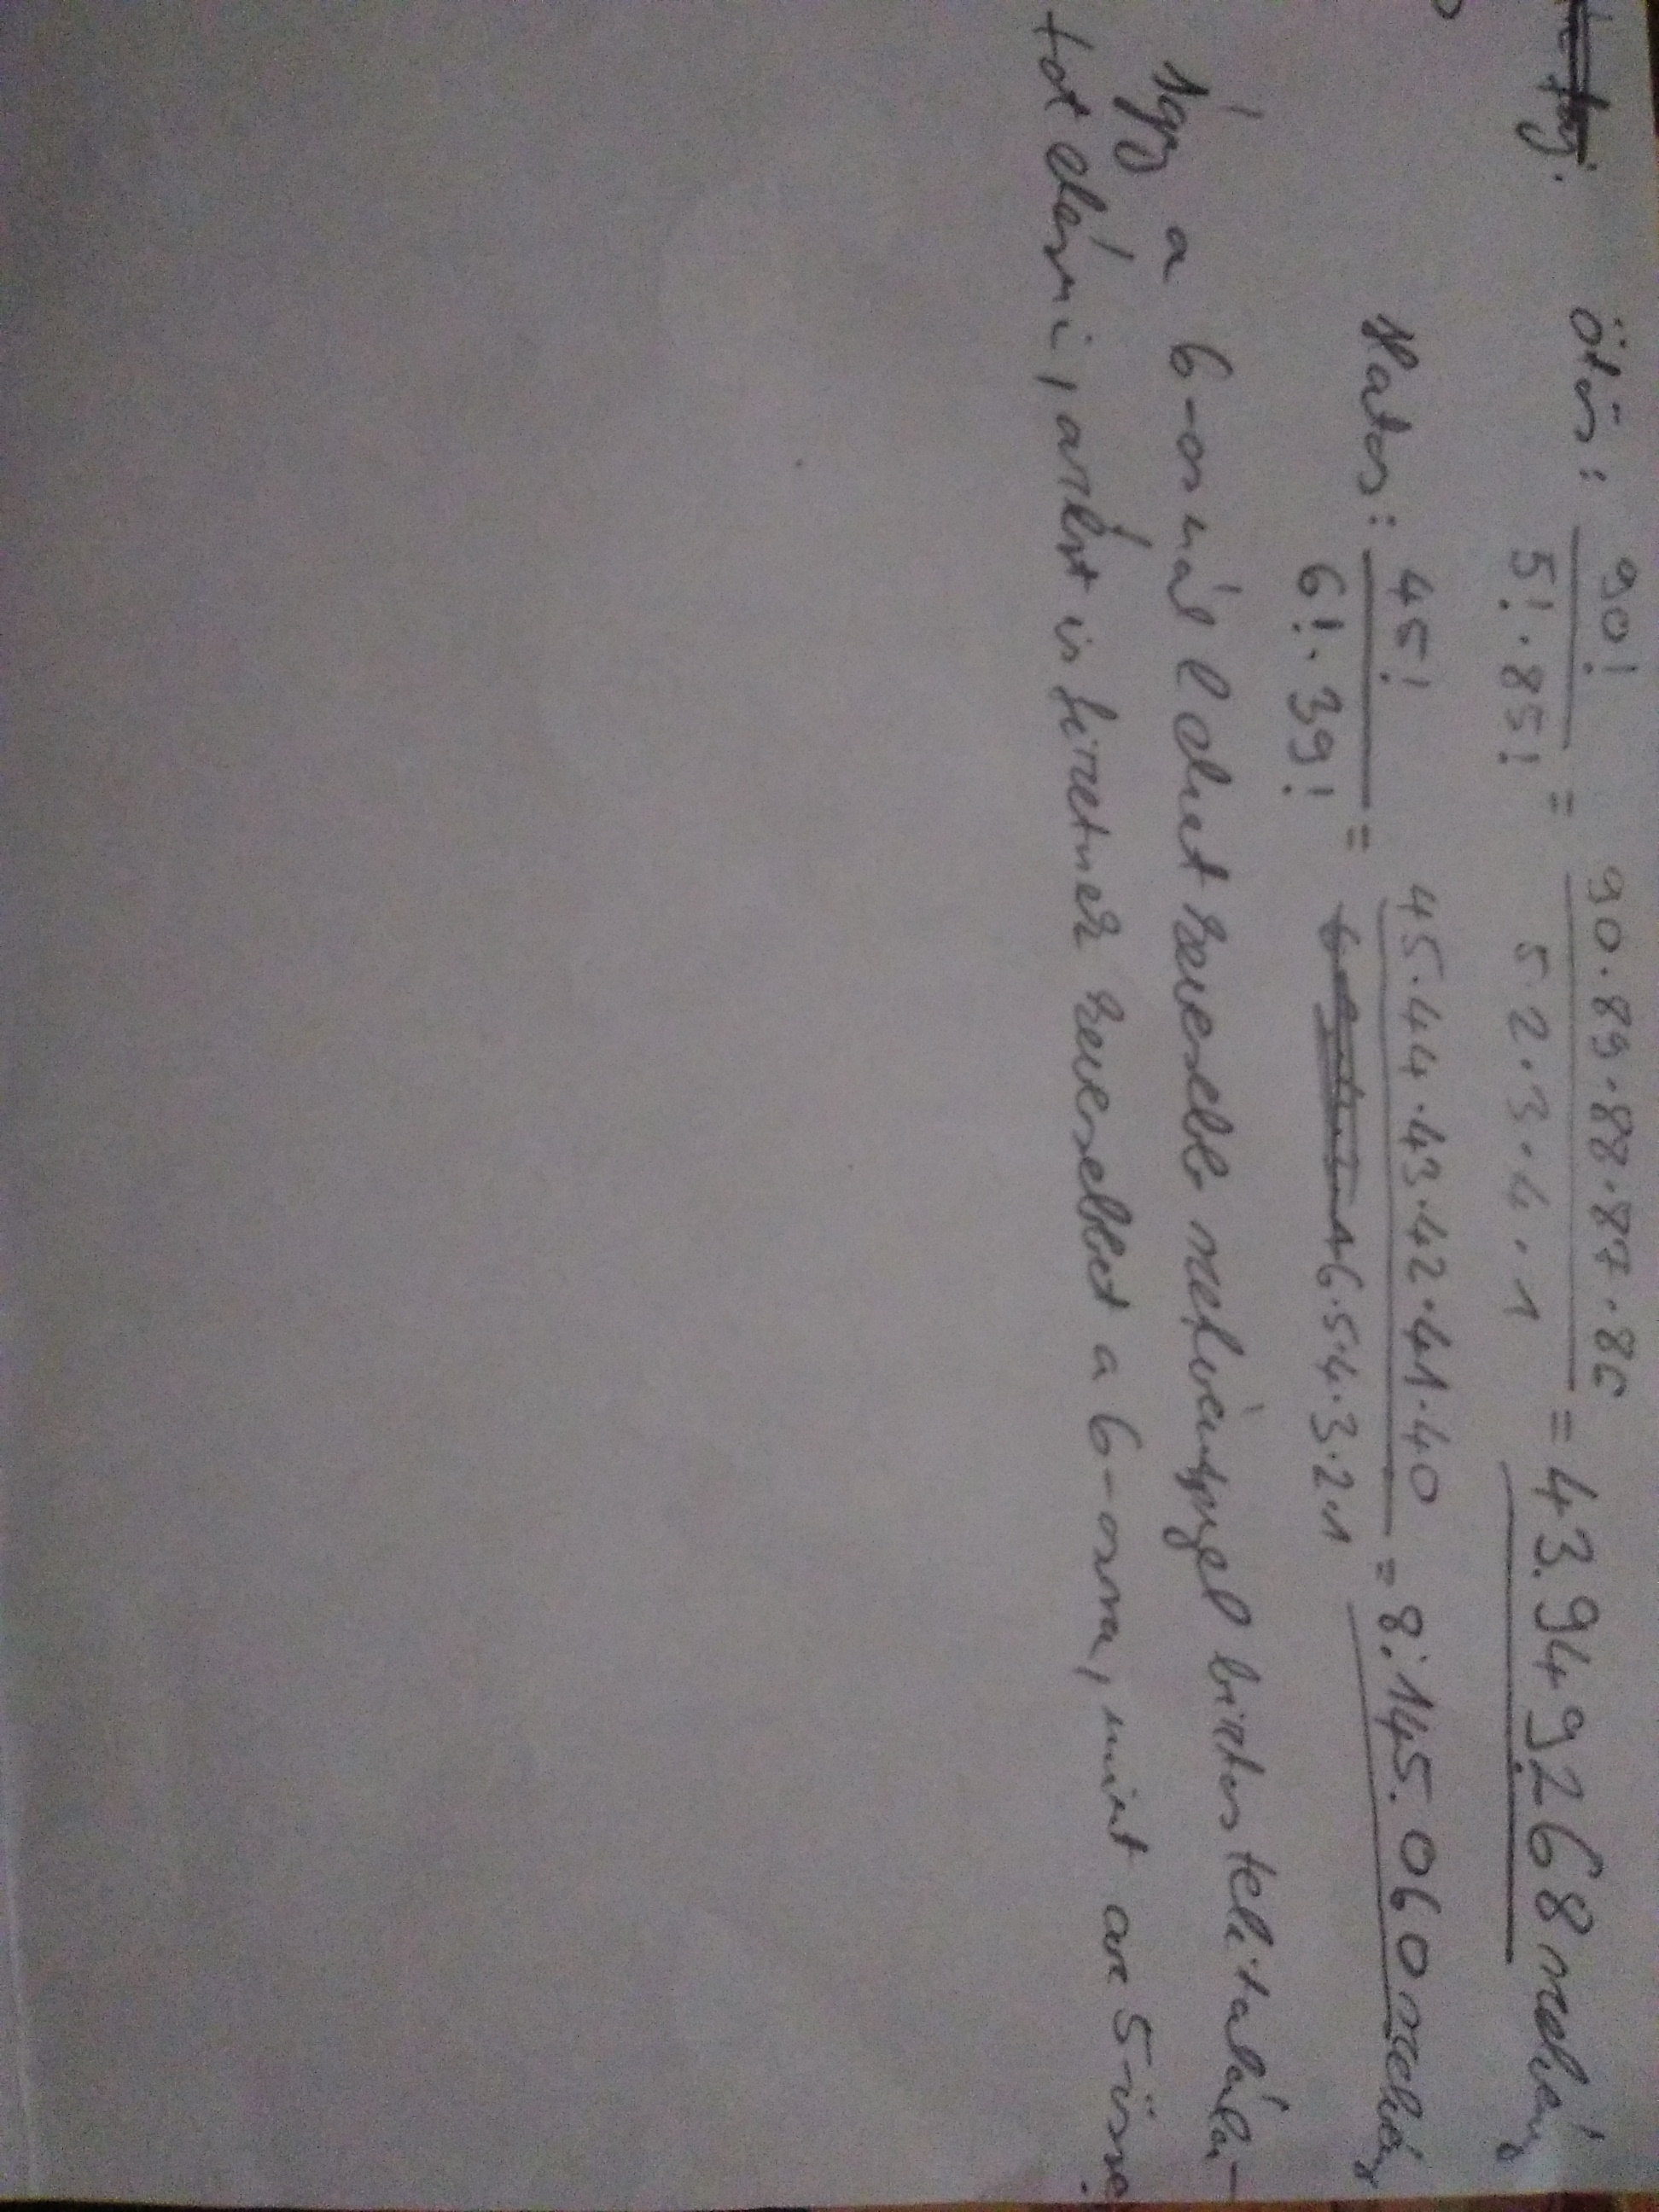 Ötös: 90! / 5!·85! = 90·89·88·87·86 / 5·2·3·4·1 = 43.949.268 szelvény
Hatos: 45! / 6!·39! = 45·44·43·42·41·40 / 6·5·4·3·2·1 = 8.145.060 szelvény
Így a 6-osnál lehet kevesebb szelvénnyel biztos telitalála-
tot elérni, azért is fizetnek kevesebbet a 6-osra, mint az 5-ösre.